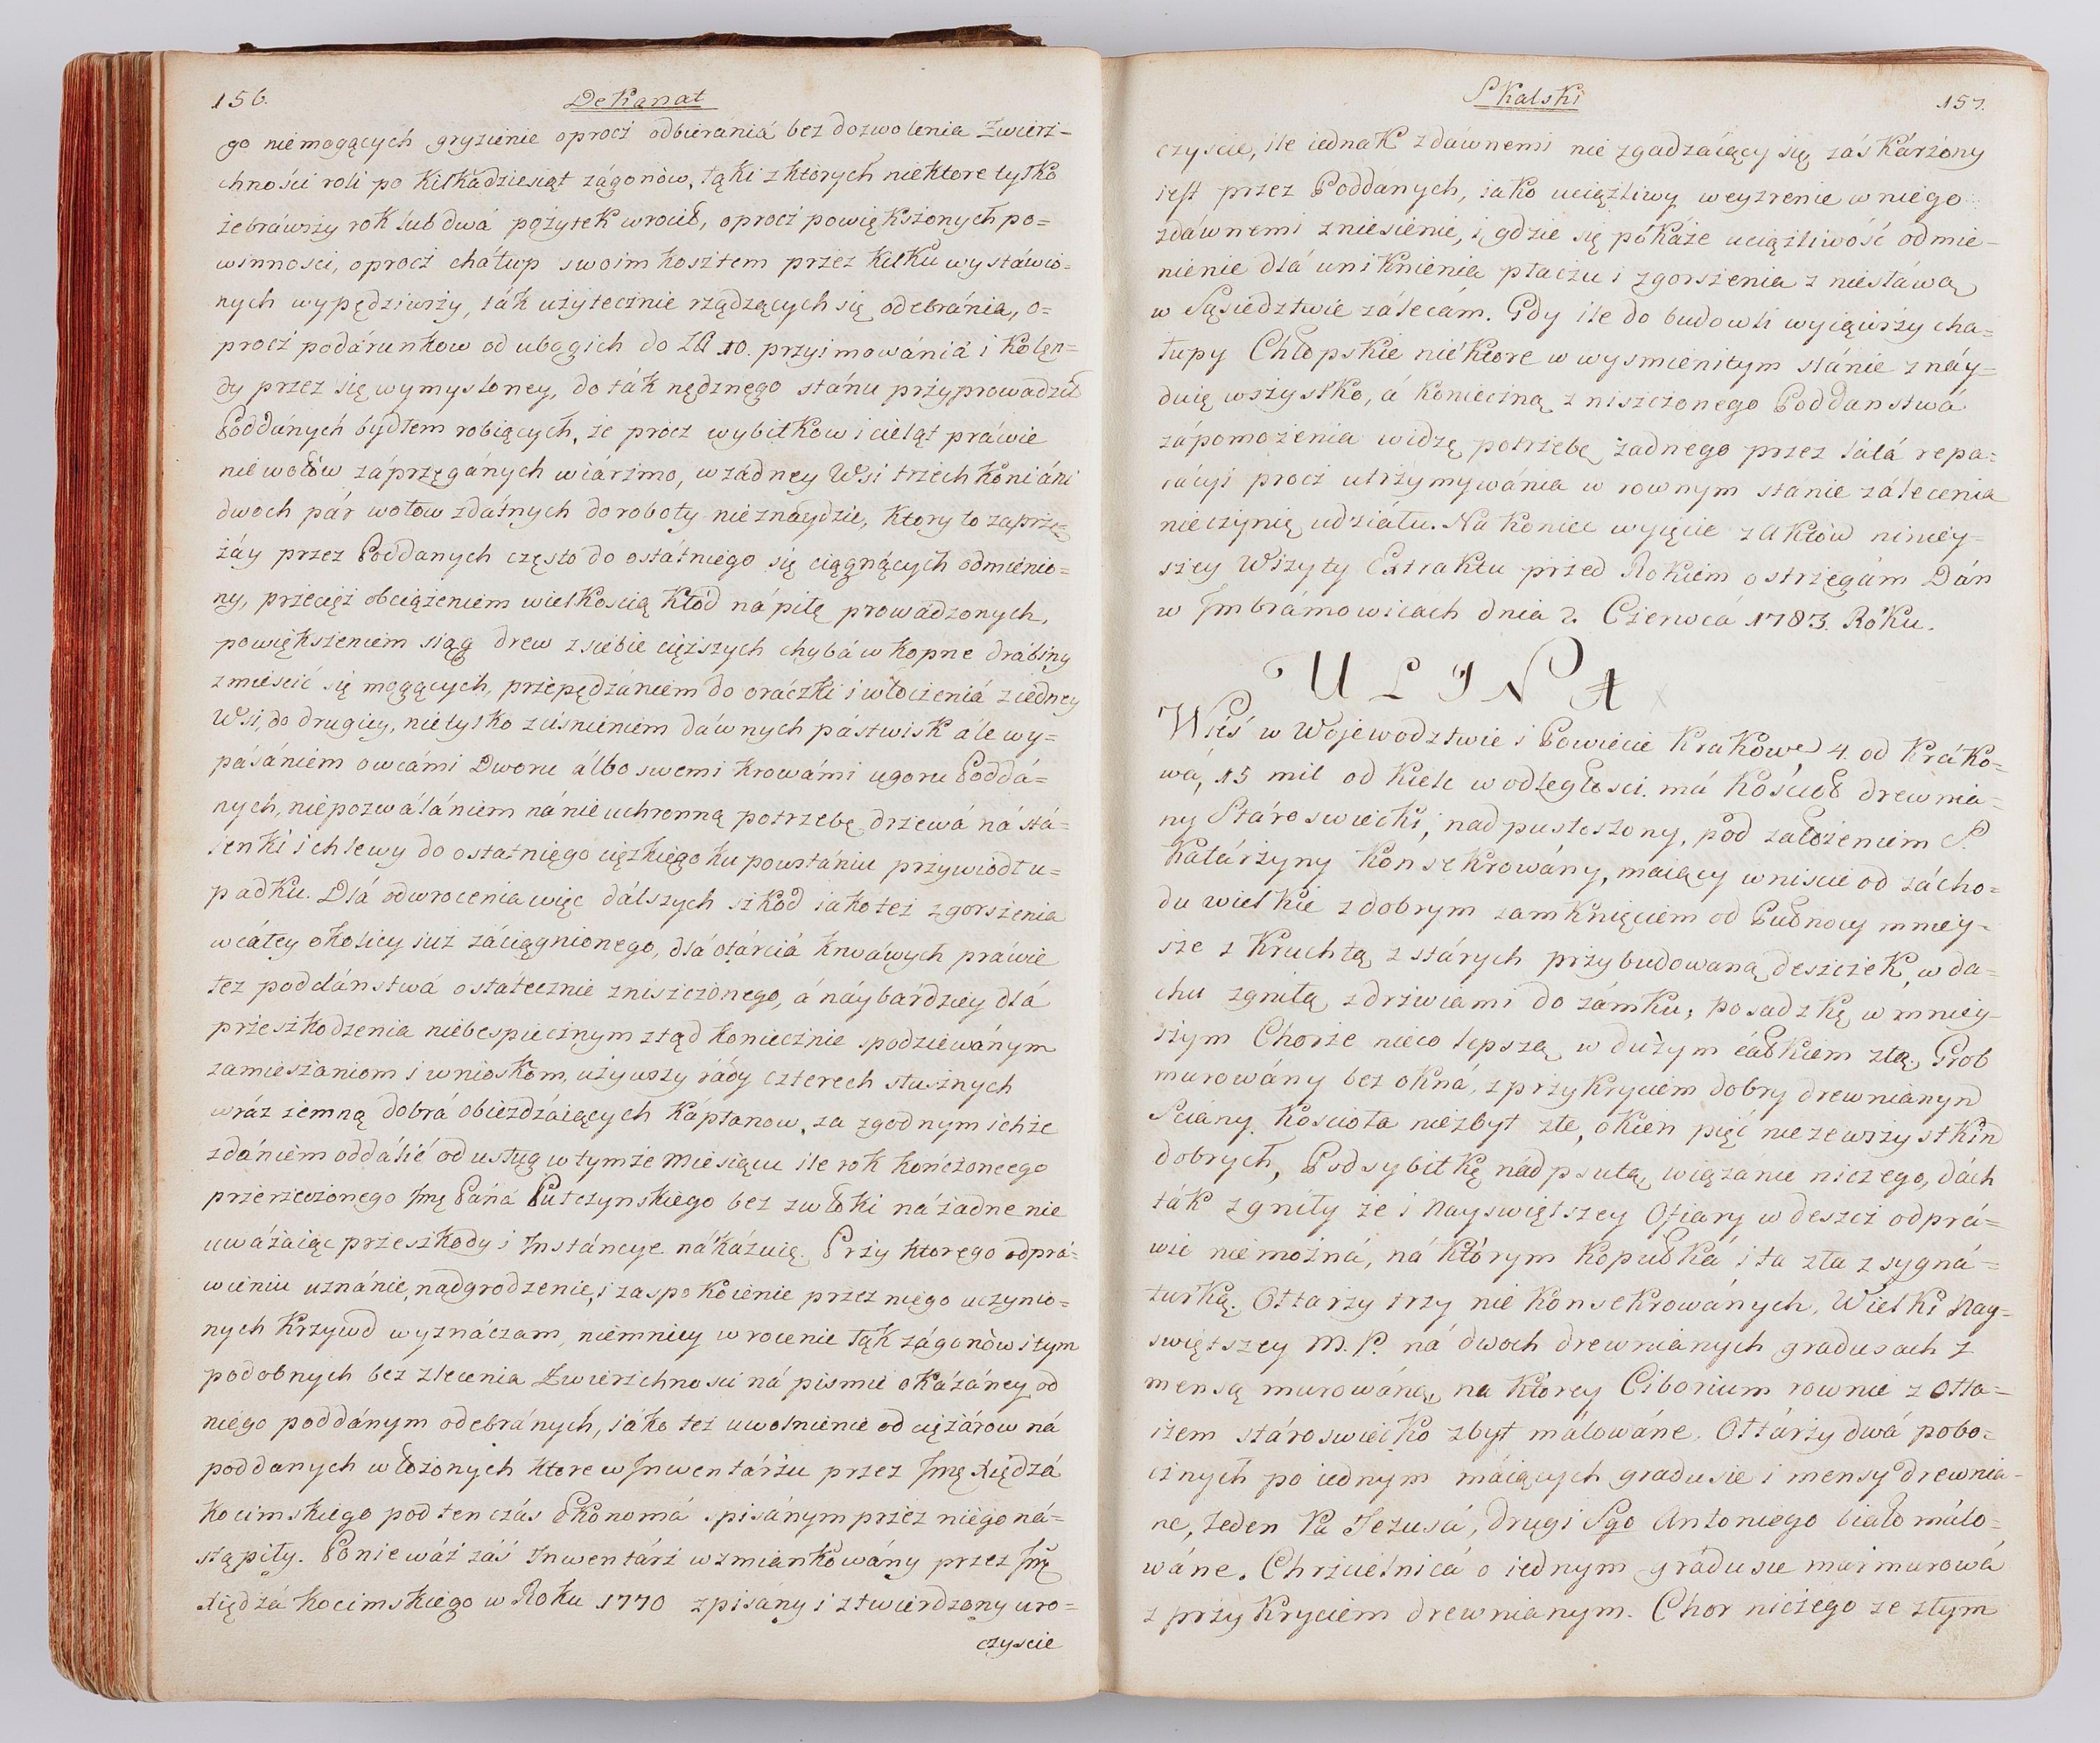 156.
Dekanat
go niemogących gryzienie oprocz odbierániá bez dozwolenia Zwierz-
chności roli po kilkádziesiąt zágonów, łąki z ktorych niektore tylko
zebráwszy rok lub dwá pożytek wrocił, oprocz powiększonych po=
winnosci, oprocz cháłup swoim kosztem przez kilku wystáwio=
nych wypędziwszy, ták użytecznie rządzących się odebránia, o=
procz podárunkow od ubogich do Zł 10. przyimowániá i kolęn=
dy przez się wymysloney, do ták nędznego stánu przyprowadził
Poddánych bydłem robiących, że procz wybitkow i cieląt práwie
nie wołów záprzęgánych w iárzmo, w żádney Wsi trzech koni áni
dwoch pár wołow zdátnych do roboty nieznaydzie, ktory to zaprzę=
żáy przez Poddanych często do ostátniego się ciągnących odmienio=
ny, przecięż obciążeniem wielkoscią kłód ná piłę prowadzonych,
powiększeniem siąg drew z siebie cięższych chybá w kopne drábiny
zmieścić się mogących, przepędzániem do oráczki i włoczeniá z iedney
Wsi, do drugiey, nie tylko ziśnieniem dáwnych pástwisk ále wy=
pásániem owcámi Dworu álbo swemi krowámi ugoru Poddá=
nych, niepozwálániem ná nieuchronną potrzebę drzewá ná stá=
ienki i chlewy do ostatniego cięzkiego ku powstániu przywiodł u=
padku. Dlá odwrocenia więc dálszych szkod iako też zgorszenia
w cáłey okolicy iuż záciągnionego, dlá otárciá krwáwych práwie
łez poddáństwá ostátecznie zniszczonego, á náybárdziey dlá
przeszkodzenia niebespiecznym ztąd koniecznie spodziewánym
zamieszaniom i wnioskom, używszy rády czterech słusznych
wráz zemną dobrá obieżdzáiących Kápłanow, za zgodnym ichże
zdániem oddálić od usług w tymże Miesiącu ile rok kończoncego
przerzeczonego Jmę Páńá Pułczynskiego bez zwłoki ná żadne nie
uwáżaiąc przeszkody i Instáncye nákázuię. Przy ktorego odprá=
wieniu uznánie, nadgrodzenie, i zaspokoienie przez niego uczynio=
nych Krzywd wyznáczam, niemniey wrocenie łąk zágonów i tym
podobnych bez zlecenia Zwierzchności ná pismie okázáney od
niego poddánym odebránych, iáko też uwolnienie od ciężárow ná
poddanych włożonych ktore w Inwentárzu przez Jmę Xiędzá
Kocimskiego pod ten czás Ekonomá spisánym przez niego ná=
stąpiły. Poniewáż záś Inwentárz wzmiankowány przez Jmę
Xiędzá Kocimskiego w Roku 1770 zpisány i ztwierdzony uro=
czyscie
Skalski
157.
czyscie, ile iednak z dáwnemi nie zgadzáiący się záskárżony
iest przez Poddanych, iako uciążliwy weyzrenie w niego
z dáwnemi zniesienie, i gdzie się pokáże uciążliwość odmie-
nienie dlá uniknienia płaczu i zgorszenia z niesłáwą
w Sąsiedztwie zálecám. Gdy ile do budowli wyciąwszy cha=
łupy Chłopskie niektore w wysmienitym stánie znáy=
duię wszystko, á konieczną zniszczonego Poddanstwá
zápomożenia widzę potrzebę żadnego przez láłá repa=
rácyi procz utrzymywánia w rownym stánie zálecenia
nieczynię udziáłu. Na koniec wyięcie z Aktów niniey=
szey Wizyty Extraktu przed Rokiem ostrzegám Dán
w Imbrámowicach dnia 2. Czerwcá 1783. Roku.
ULINA
Wieś w Wojewodztwie i Powiecie Krakow. 4. od Kráko=
wá, 15 mil od Kielc w odległosci. má Kościoł drewnia=
ny Stároswiecki, nadpustoszony, pod założeniem S.
Katárzyny Konsekrowány, maiący wniscie od zácho=
du wielkie z dobrym zamknięciem od Pułnocy mniey-
sze z Kruchtą z stárych przybudowaną deszczek, w da=
chu zgniłą z drzwiami do zámku, posadzkę w mniey-
szym Chorze nieco lepszą w dużym całkiem złą, Grob
murowány bez okná, z przykryciem dobry drewnianym
Sciány Kościoła niezbyt złe, okien pięć nie ze wszystkim
dobrych, Podsybitkę nádpsutą, wiązánie niczego, dách
ták zgniły że i Nayswiętszey Ofiary w deszcz odprá=
wić niemożná, ná ktorym kopułká i ta zła z sygná=
turką. Ołtarzy trzy nie konsekrowánych, Wielki Nay=
swiętszey M. P. ná dwoch drewnianych gradusach z
mensą murowáną, na ktorey Ciborium rownie z Ołta=
rzem stároswiecko zbyt málowáne. Ołtárzy dwá pobo=
cznych po iednym máiących gradusie i mensy drewnia=
ne, Jeden Pa Jezusá, drugi Sgo Antoniego biało málo=
wáne. Chrzcielnicá o iednym grádusie marmurowá
z przykryciem drewnianym. Chor niczego ze złym